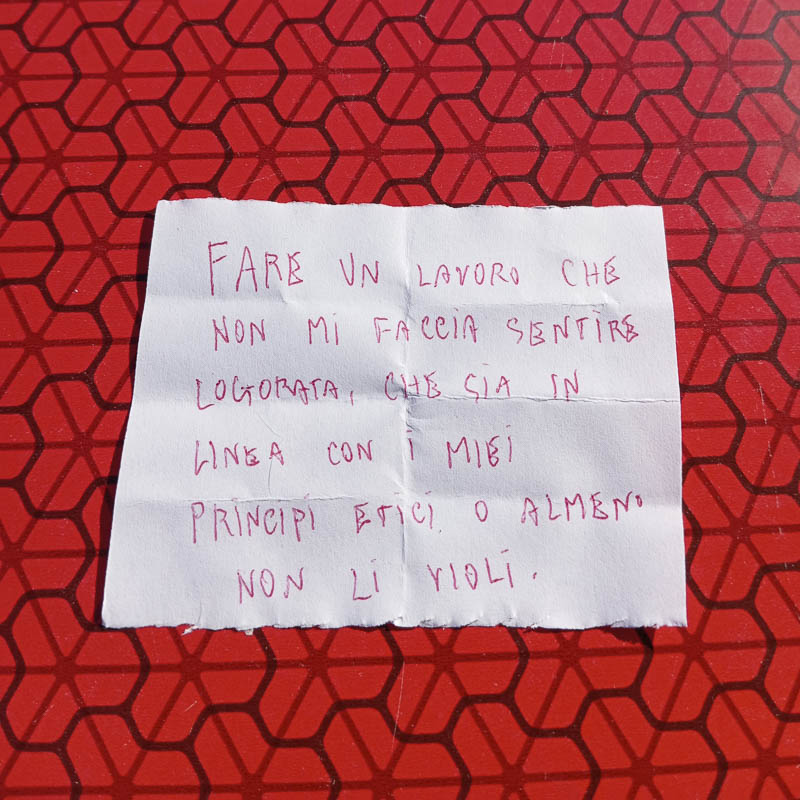 FARE UN LAVORO CHE
NON MI FACCIA SENTIRE
LOGORATA, CHE SIA IN
LINEA CON I MIEI
PRINCIPI ETICI O ALMENO
NON LI VIOLI.